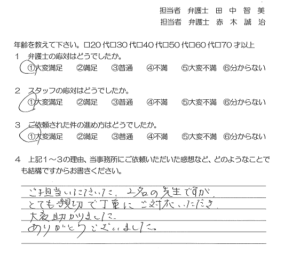 担当者 弁護士 田中智美
担当者 弁護士 赤木誠治
年齢を教えて下さい。□20代□30代□40代□50代□60代□70才以上
1 弁護士の応対はどうでしたか。
①大変満足 ②満足 ③普通 ④不満 ⑤大変不満 ⑥分からない
2 スタッフの応対はどうでしたか。
①大変満足 ②満足 ③普通 ④不満 ⑤大変不満 ⑥分からない
3 ご依頼された件の進め方はどうでしたか。
①大変満足 ②満足 ③普通 ④不満 ⑤大変不満 ⑥分からない
4 上記1～3の理由、当事務所にご依頼いただいた感想など、どのようなことで
も結構ですからお書きください。
ご担当いただいた、2名の先生ですが、
とても親切で丁寧にご対応いただき
大変助かりました。
ありがとうございました。